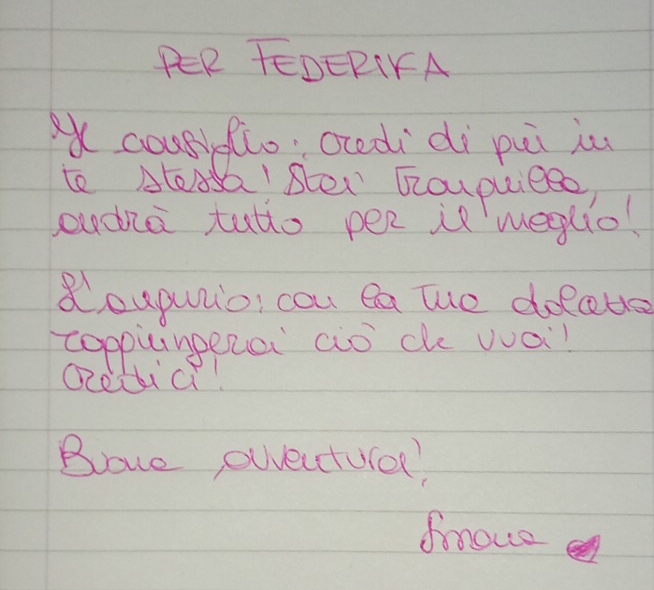 PER FEDERIKA
Il consiglio: credi di più in
te stessa! Stai tranquilla,
andrà tutto per il meglio!
L'augurio: con la tua dolcezza
raggiungerai ciò che vuoi!
Credici!
Buona avventura!
Simona